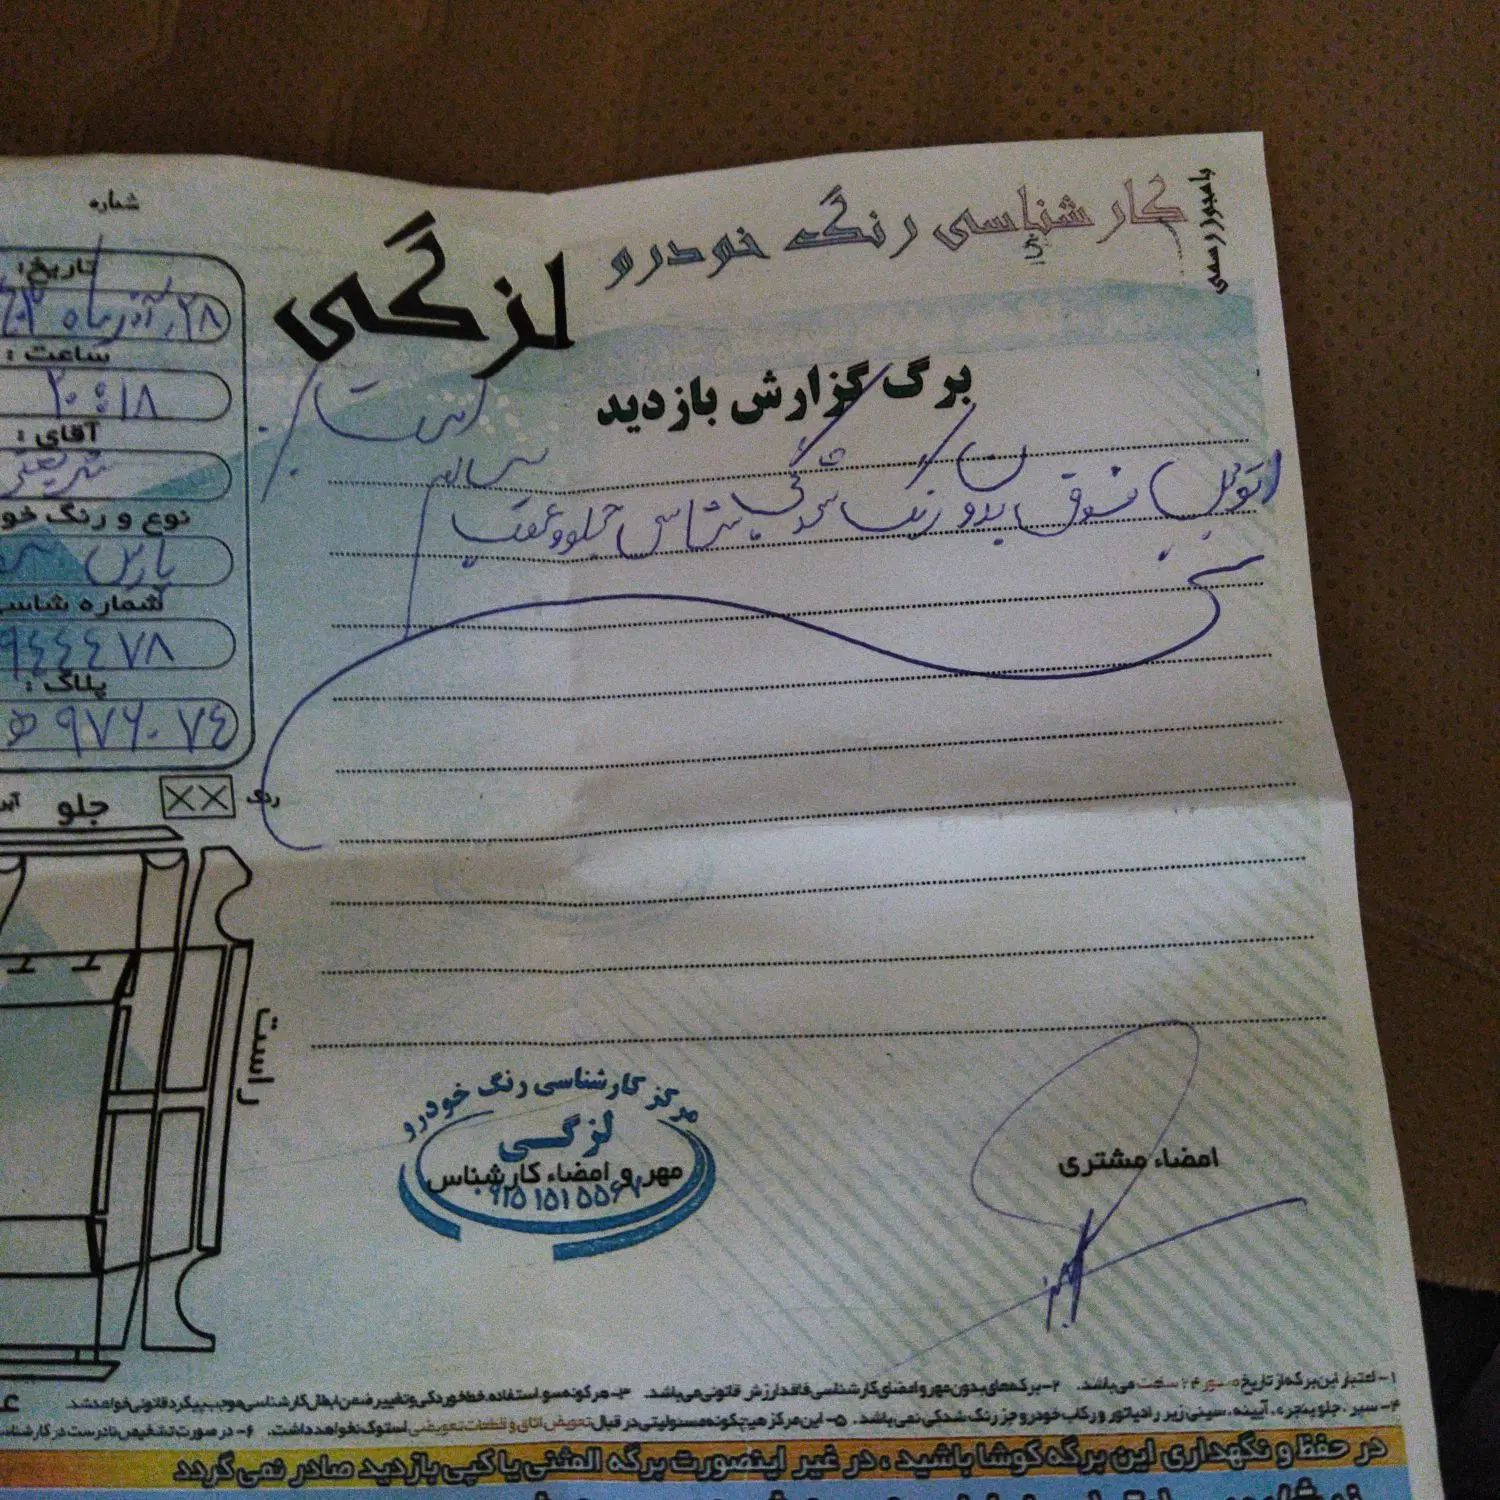 کارشناسی رنگ خودرو لزگی
با مجوز رسمی
برگ گزارش بازدید
اتومبیل فوق بدون رنگ شدگی شاسی جلو و عقب سالم
است
شماره
تاریخ:
۲۸ آذر ماه
ساعت :
۲۰:۱۸
آقای :
شریعتی
نوع و رنگ خو
پارس
شماره شاسی
۹۴۴۴۷۸
پلاک :
۷۴ ۹۷۶ ه
رنگ ××
جلو
راست
مرکز کارشناسی رنگ خودرو
لزگی
مهر و امضاء کارشناس
امضاء مشتری
۱- اعتبار این برگه از تاریخ صدور ۲۴ ساعت می‌باشد. ۲- برگه‌های بدون مهر و امضای کارشناسی فاقد ارزش قانونی می‌باشد. ۳- هرگونه سو استفاده خط خوردگی و تغییر ضمن ابطال کارشناسی موجب پیگرد قانونی خواهد شد.
۴- سپر، جلو پنجره، آیینه، سینی زیر رادیاتور و رکاب خودرو جز رنگ شدگی نمی‌باشد. ۵- این مرکز هیچگونه مسئولیتی در قبال تعویض اتاق و قطعات تعویضی استوک نخواهد داشت. ۶- در صورت تشخیص نادرست در کارشناسی
در حفظ و نگهداری این برگه کوشا باشید ، در غیر اینصورت برگه المثنی یا کپی بازدید صادر نمی گردد